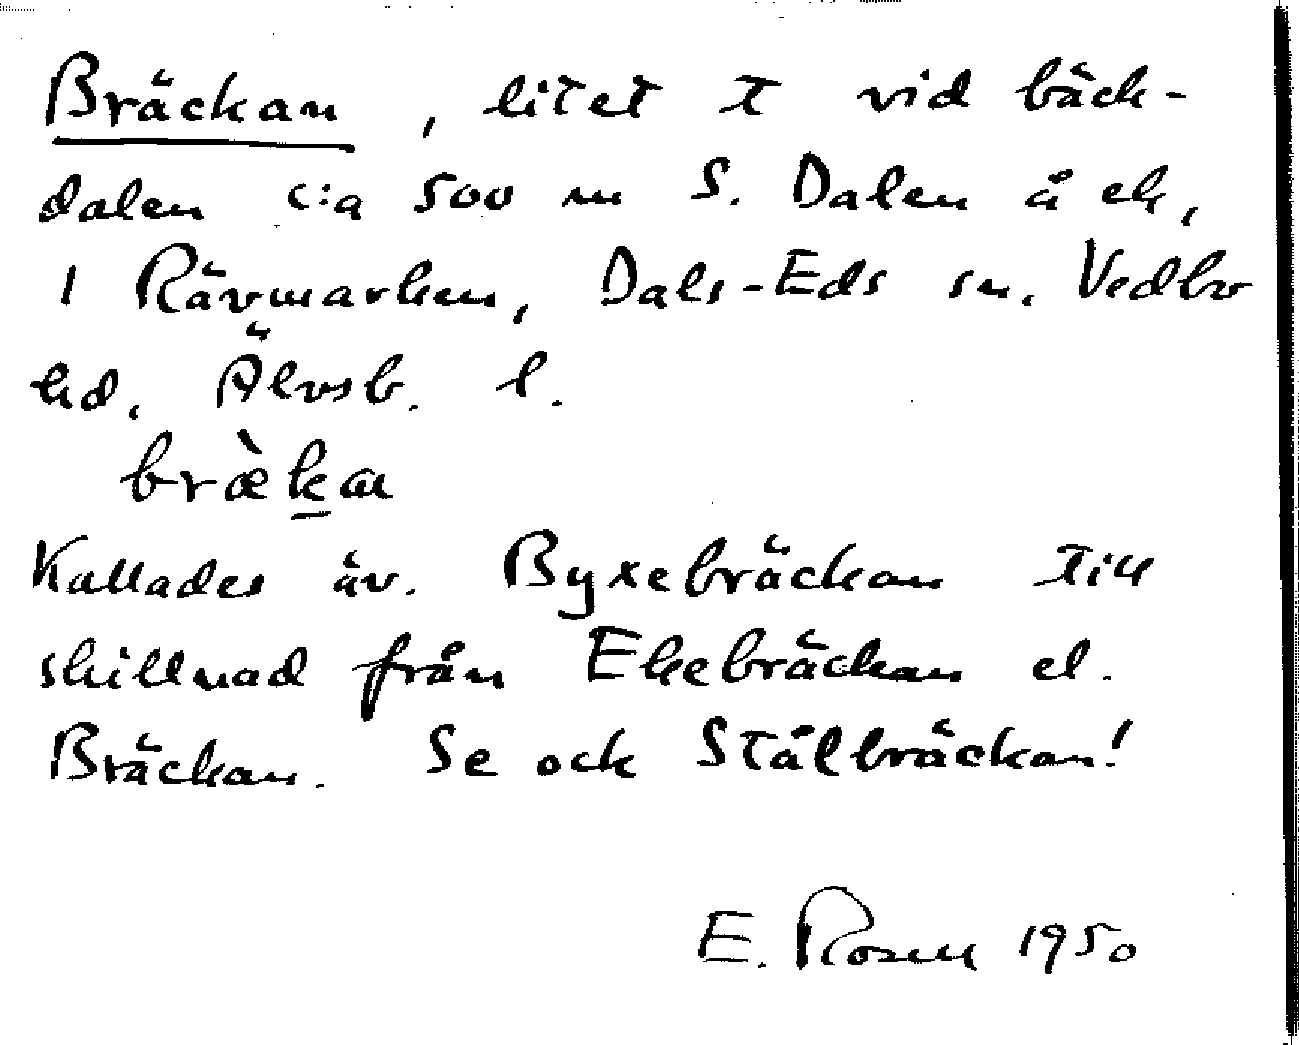 Bräckan, litet t vid bäck-
dalen c:a 500 m S. Dalen å ek,
i Rävmarken, Dals-Eds sn. Vedbo
hd. Älvsb. l.
bræ̀k̠aɹ
Kallades äv. Byxebräckan till
skillnad från Ekebräckan el.
Bräckan. Se ock Stålbräckan!
E. Rosen 1950